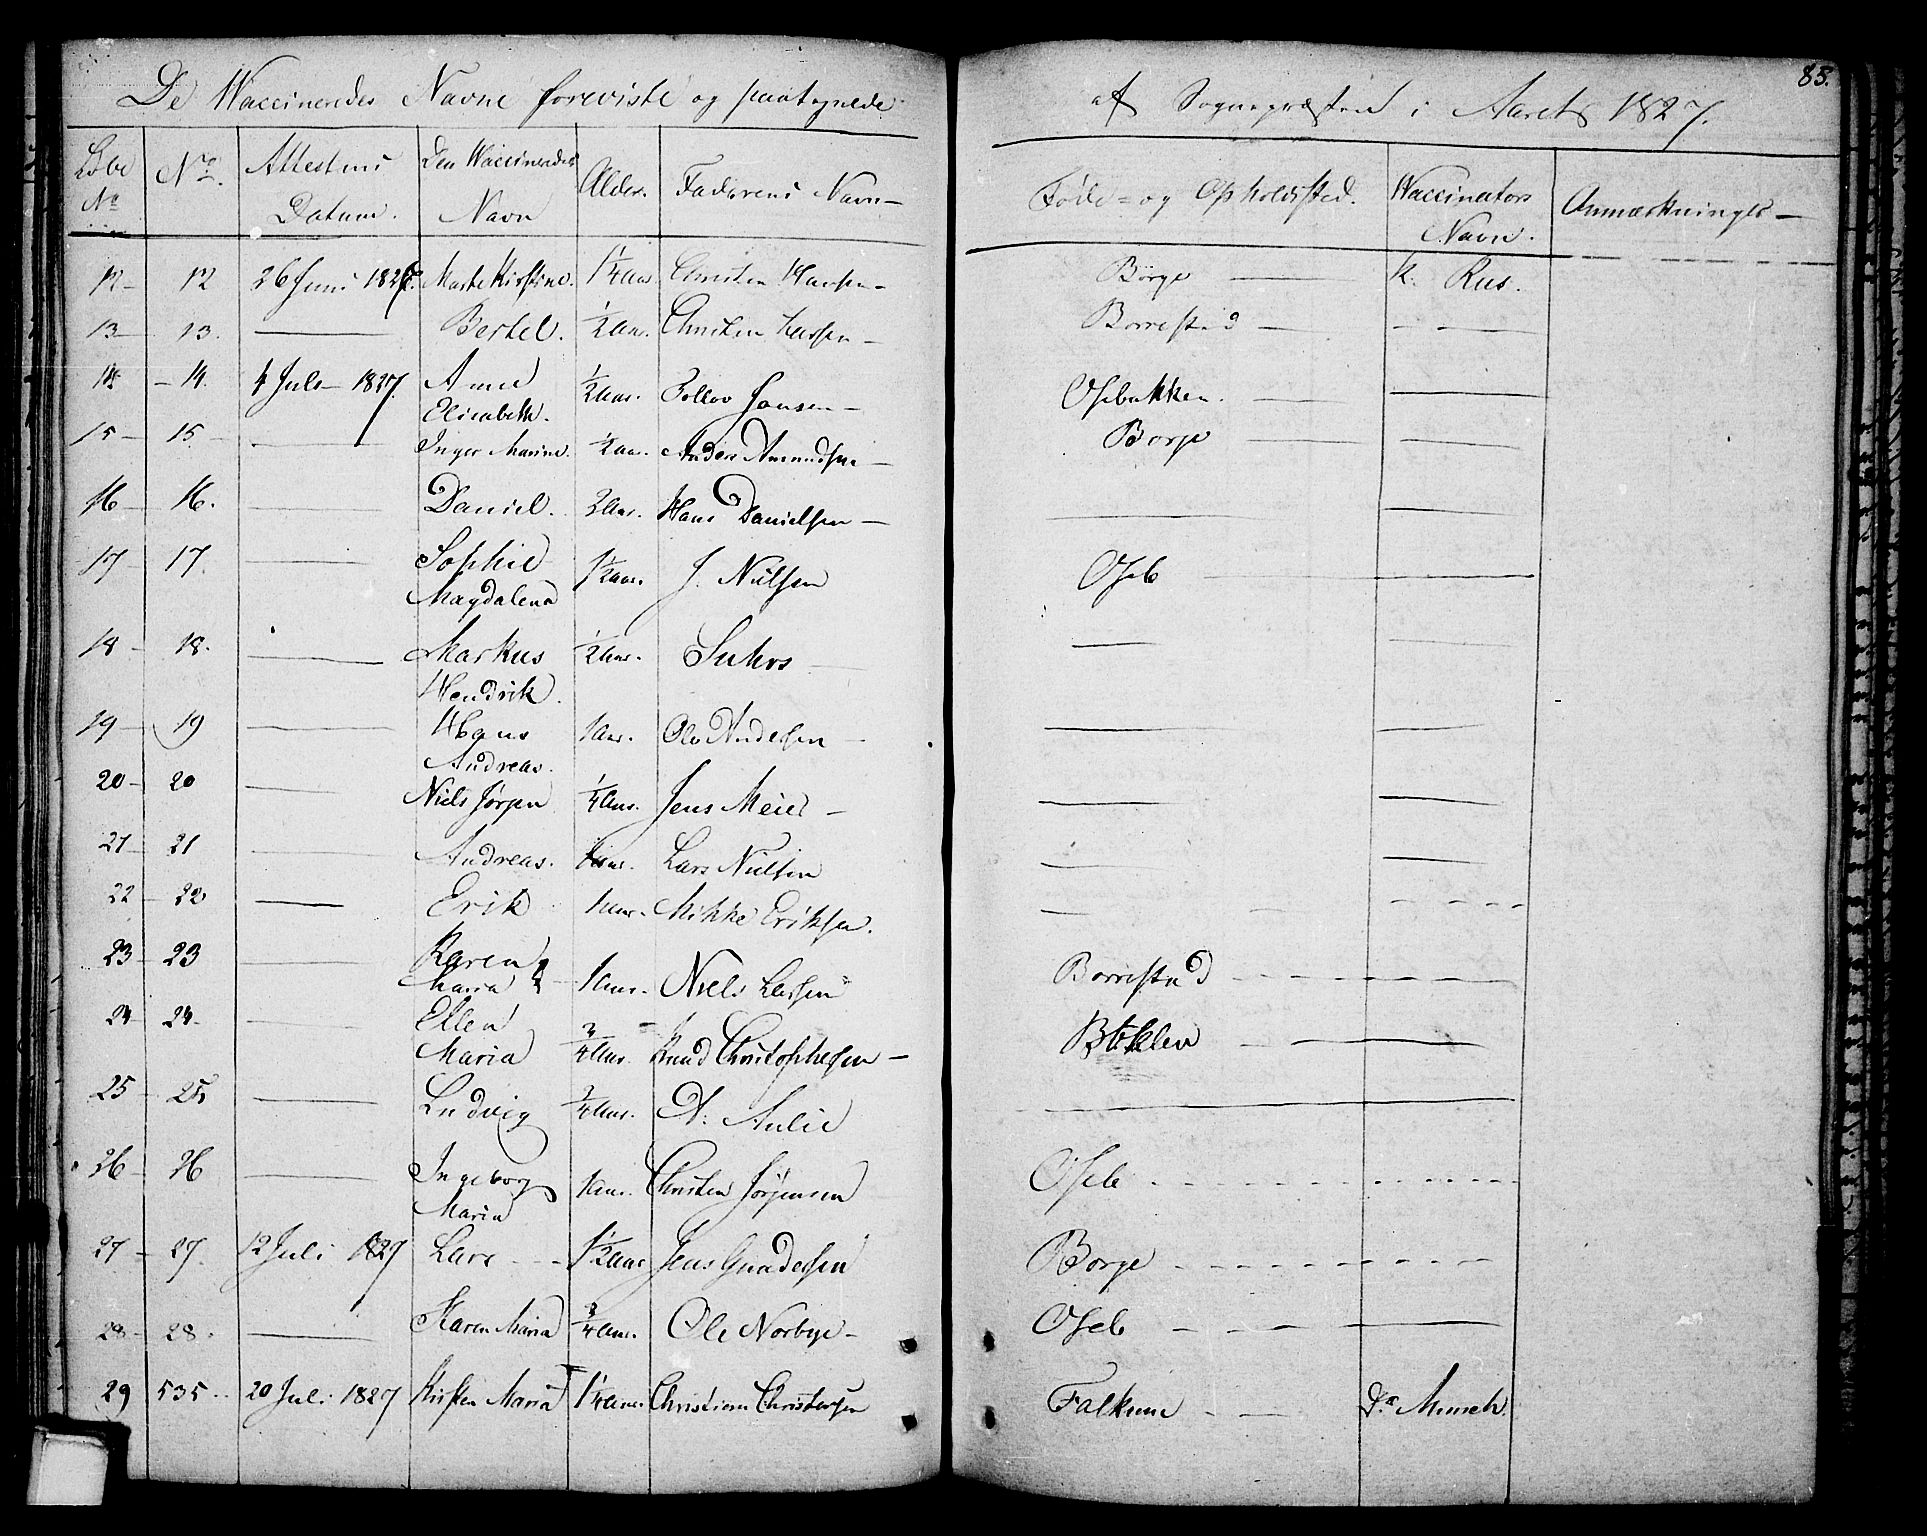 85.
De Vaccineredes Navne foreviste og paategnede af Sognepræsten i Aaret 1827.
Løbe No | No. | Attestens Datum. | Den Vaccineredes Navn | Alder. | Faderens Navn | Føde- og Opholdsted. | Vaccinators Navn. | Anmærkninger
12 | 12 | 26 Juni 1827. | Marte Kirstine. | 1/4 aar | Christen Hansen | Borge — | K. Rus.
13 | 13. | — | Bertel. | 1/2 aar. | Christen Larsen | Borrestad — | —
14 | 14. | 4 Juli 1827. | Anne Elisabeth. | 1/2 aar. | Jansen | Osebakken. — | —
15 | 15 | — | Inger Marine. | 1/2 aar. | Anders Amundsen | Borge — | —
16 | 16. | — | Daniel. | 2 aar. | Hans Danielsen | — | —
17 | 17. | — | Sophie Magdalena | 1 1/2 aar. | J. Nilsen | Oseb — | —
18 | 18. | — | Markus Hendrik. | 1/2 aar. | Suhrs | — | —
19 | 19 | — | Hans Andreas. | 1 aar. | Ole Andersen | — | —
20 | 20 | — | Niels Jörgen | 1/4 aar. | Jens Meier | — | —
21 | 21 | — | Andreas. | aar. | Lars Nilsen | — | —
22 | 22 | — | Erik | 1 aar. | Mikkel Eriksen. | — | —
23 | 23 | — | Karen Maria | 1 aar. | Niels Larsen | Borrestad — | —
24 | 24. | — | Ellen Maria | 3/4 aar. | Knud Christophersen | — | —
25 | 25 | — | Ludvig | 3/4 aar. | A. Aulie | — | —
26 | 26 | — | Ingeborg Maria | 1 aar. | Christen Jörgensen | Oseb — | —
27 | 27. | 12 Juli 1827 | Lars | 1 1/2 aar | Jens Gundersen | Borge — | —
28 | 28. | — | Karen Maria | 3/4 aar. | Ole Norbye | Oseb — | —
29 | 535. | 20 Juli 1827 | Kirsten Maria | 1 1/4 aar. | Christian Christensen | Falkum — | Dr. Munch.